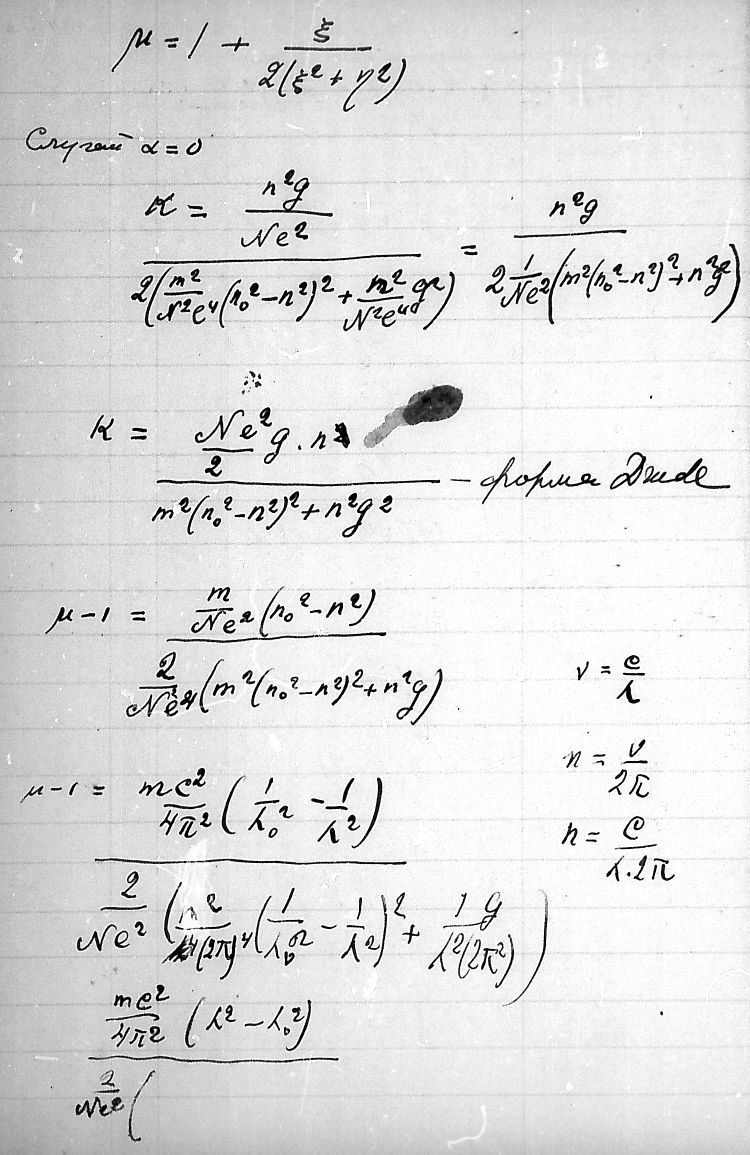 μ = 1 + ξ / 2(ξ² + η²)
Случай α = 0
κ = (n²g / Ne²) / 2(m²/N²e⁴ (n₀² − n²)² + m²/N²e⁴ g²) = n²g / 2 1/Ne² (m²(n₀² − n²)² + n²g²)
κ = Ne²/2 g · n² / m²(n₀² − n²)² + n²g² — форма Drude
μ − 1 = m/Ne² (n₀² − n²) / 2/Ne² (m²(n₀² − n²)² + n²g)
ν = c/λ
n = ν/2π
n = c/λ·2π
μ − 1 = mc²/4π² (1/λ₀² − 1/λ²) / 2/Ne² (m²/(2π)⁴ (1/λ₀² − 1/λ²)² + 1 g/λ²(2π²))
mc²/4π² (λ² − λ₀²) / 2/Ne² (